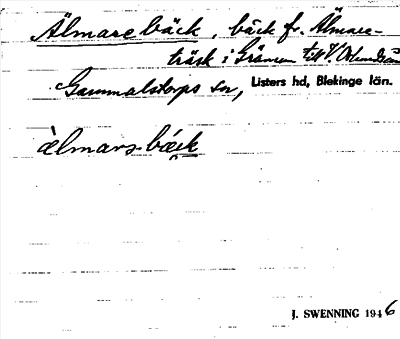 Älmarebäck, bäck fr. Älmare-
träsk i Gränum till V.
Gammalstorps sn, Listers hd, Blekinge län.
àlmarsbǽck
J. SWENNING 1946